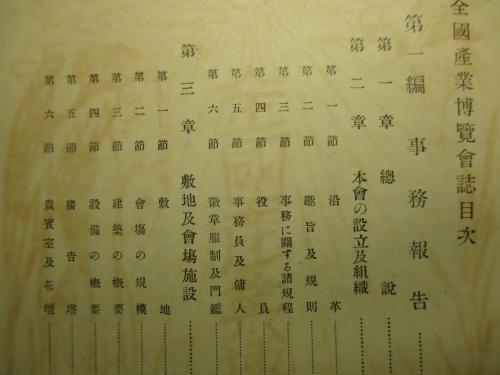 全國產業博覽會誌目次
第一編 事務報告
第一章 總說
第二章 本會の設立及組織
第一節 沿革
第二節 趣旨及規則
第三節 事務に關する諸規程
第四節 役員
第五節 事務員及傭人
第六節 徽章服制及門鑑
第三章 敷地及會場施設
第一節 敷地
第二節 會場の規模
第三節 建築の概要
第四節 設備の概要
第五節 廣告塔
第六節 貴賓室及花壇